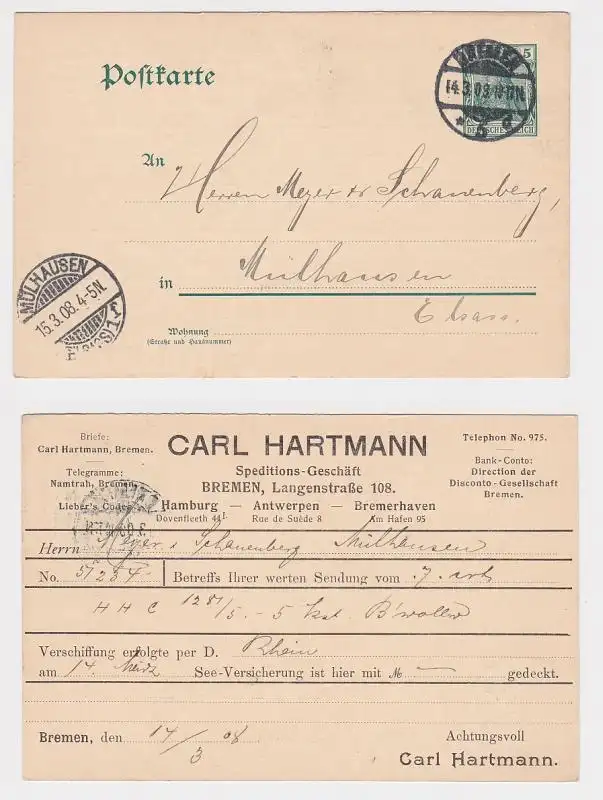 Postkarte
BREMEN
14.3.08.
5 d
5
DEUTSCHES REICH
An
Herren Meyer & Schauenberg,
in Mülhausen
Elsass.
MÜLHAUSEN
15.3.08. 4-5N.
Wohnung
(Straße und Hausnummer)
Briefe:
Carl Hartmann, Bremen.
Telegramme:
Namtrah, Bremen.
Lieber's Codes
CARL HARTMANN
Speditions-Geschäft
BREMEN, Langenstraße 108.
Telephon No. 975.
Bank-Conto:
Direction der
Disconto-Gesellschaft
Bremen.
Hamburg — Antwerpen — Bremerhaven
Dovenfleth 44I. Rue de Suède 8 Am Hafen 95
Herrn Meyer & Schauenberg Mülhausen
No. 51284 Betreffs Ihrer werten Sendung vom 7. crt
H H C 1281/5. - 5 Kst. B'wollw
Verschiffung erfolgte per D. Rhein
am 14. März See-Versicherung ist hier mit M — gedeckt.
Bremen, den 14/3 08
Achtungsvoll
Carl Hartmann.